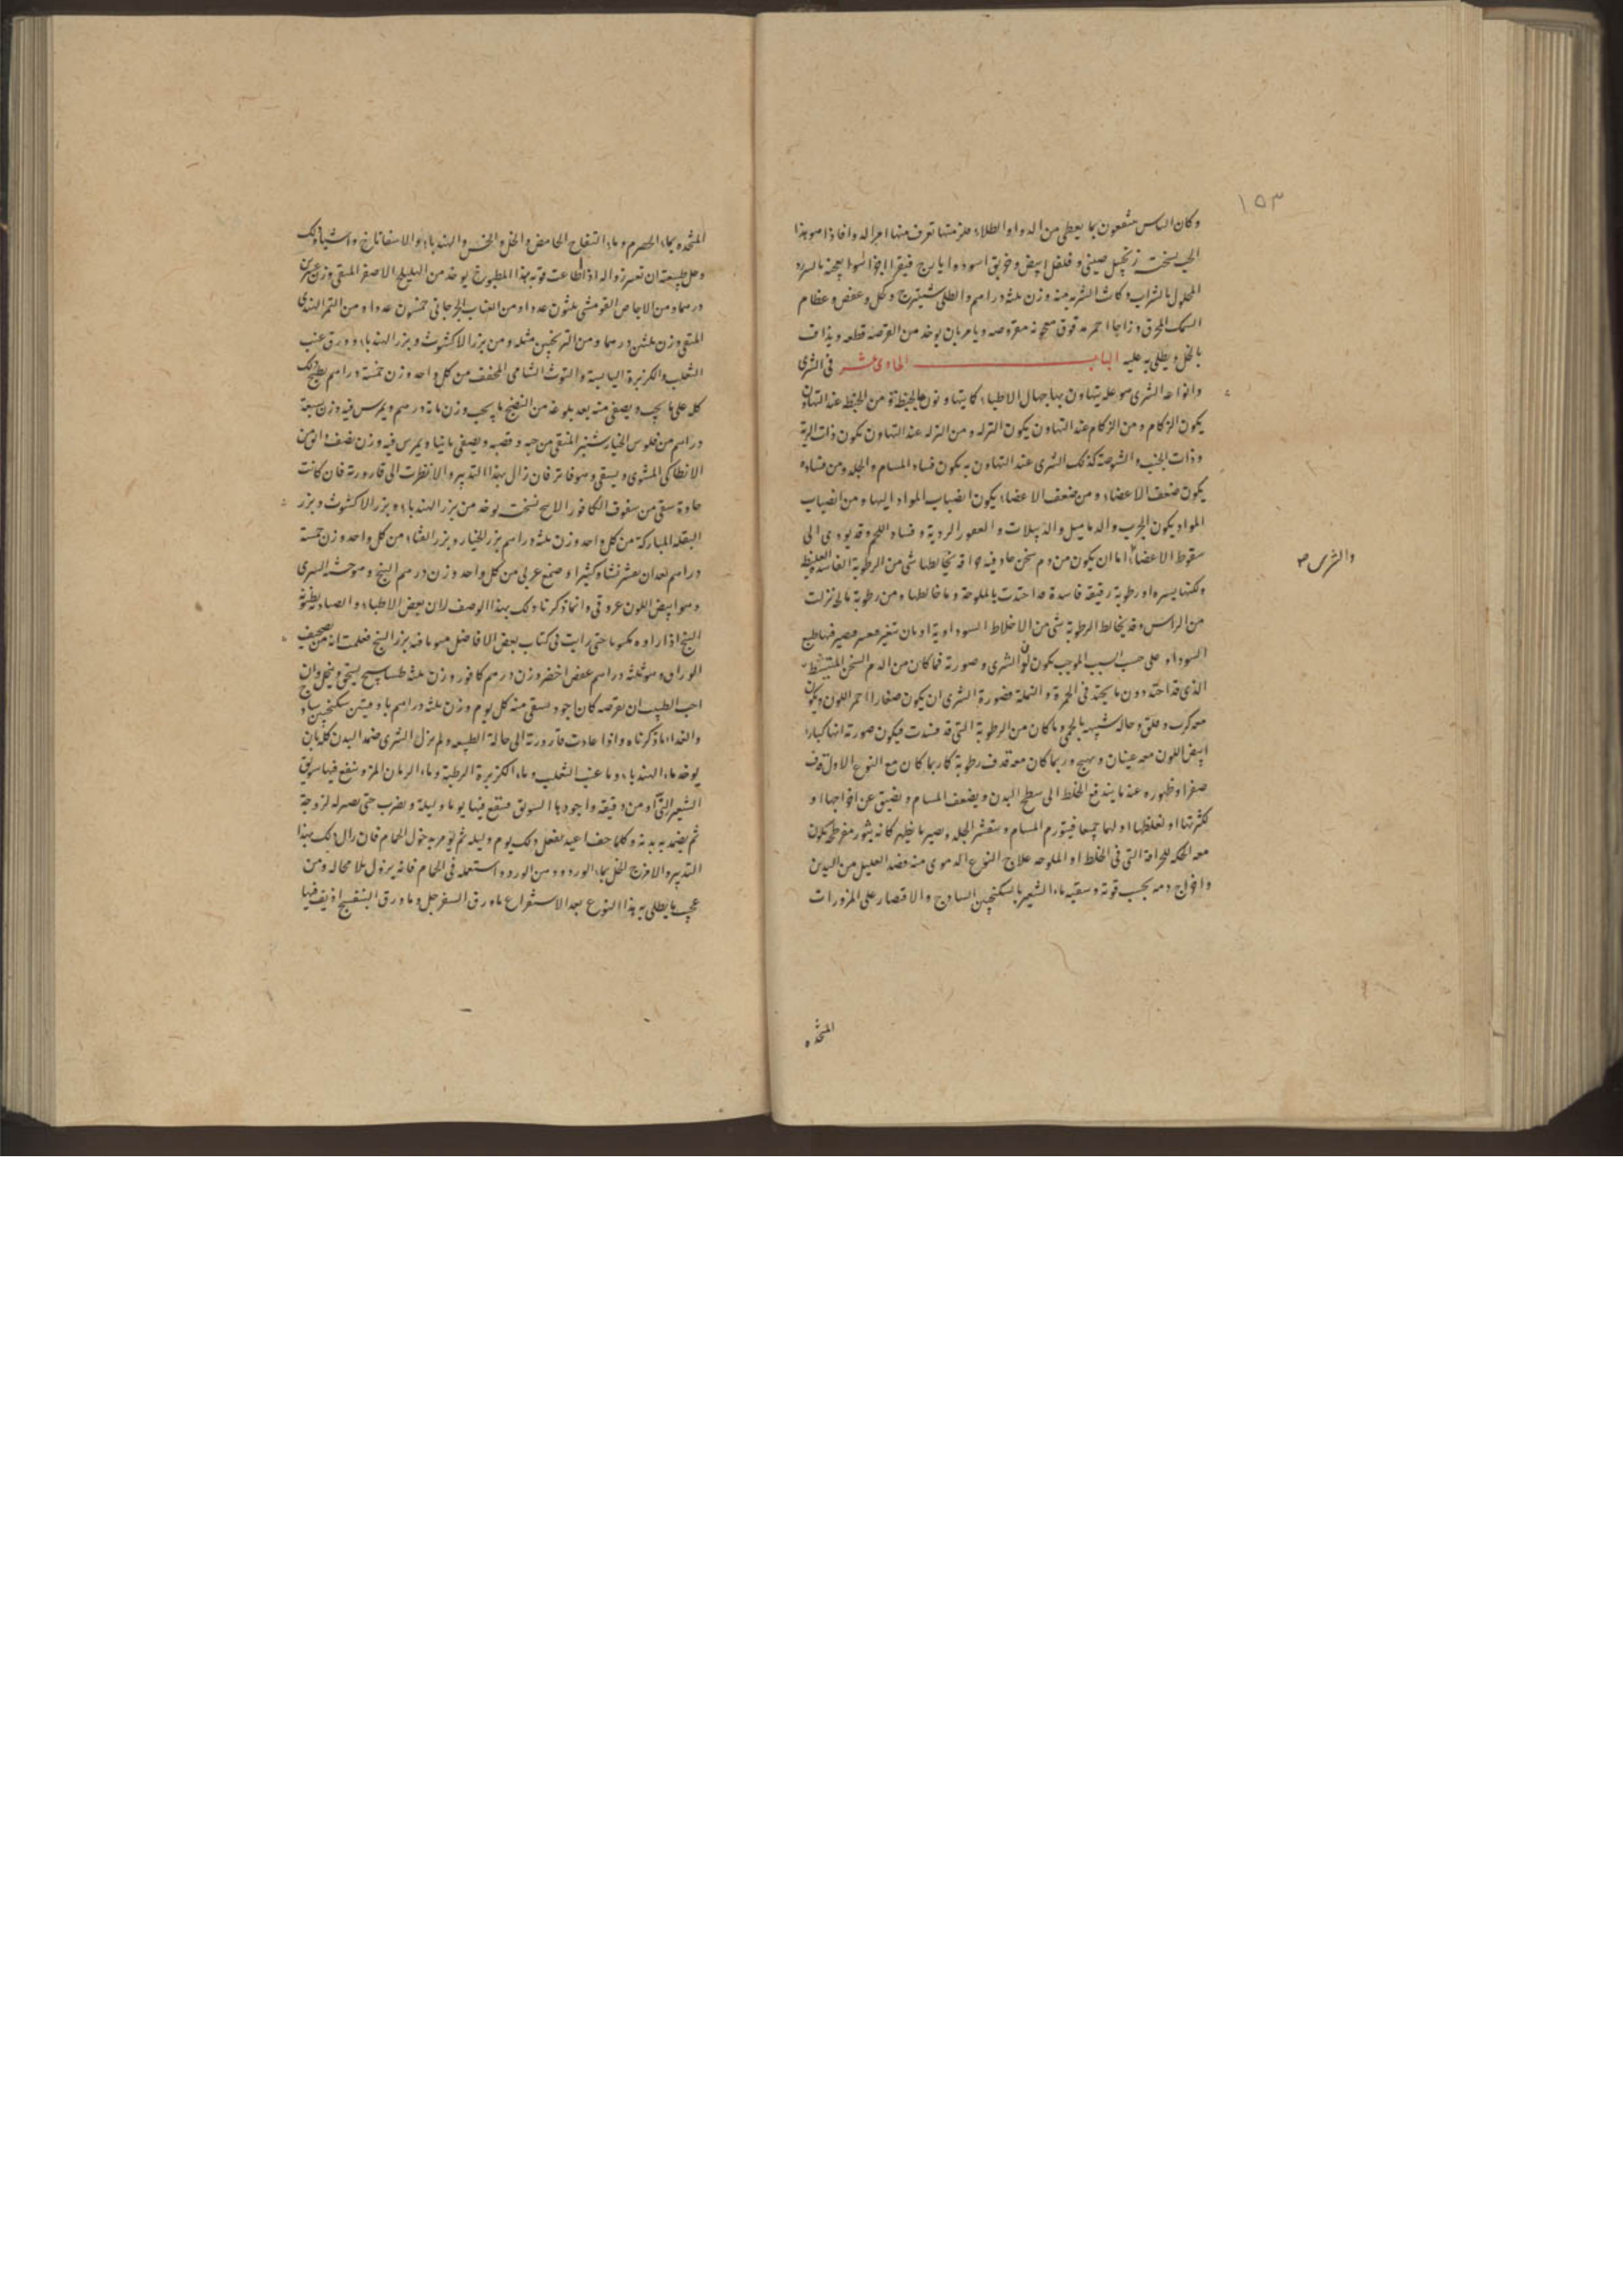 ١٥٣
وكان الناس ينتفعون بما يعطى من الدواء والطلاء تعرف منها اجزاله وافاذا هو بهذا
زنجبيل صينى و فلفل ابيض و خربق اسود وايارج فيقرا اجزا سوا يعجنه
المحلول بالشراب وكانت الشربه منه وزن ثلثه دراهم والطلى شيترج و كل وعفص وعظام
السمك المحرق وزاجا احمر مدقوق معجونه مقروصه ويامر بان يوخذ من القرصه قطعه ويذاف
بالخل ويطلى به عليه الباب الحادى عشر فى الشرى
وانواعه الشرى هو عله يتهاون بها جهال الاطباء كما يتهاونون من عند التهاون
يكون الزكام و من الزكام عند التهاون يكون النزله و من النزله عند التهاون تكون ذات الرية
و ذات الجنب و الشوصة كذلك الشرى عند التهاون به يكون فساد المسام والجلد ومن فساده
يكون ضعف الاعضاء ومن ضعف الاعضاء يكون انصباب المواد اليها ومن انصباب
المواد يكون الجرب والدماميل والدبيلات و الردية وفساد اللحم وقد يودى الى
سقوط الاعضاء اما ان يكون من دم سخن حاد فيه قد يخالطها شى من الرطوبة الفاسده الغليظ
والشرى ص
ولكنها يسيره او رطوبة رقيقه فاسدة قد احتدت بالملوحة وما خالطها ومن رطوبة مالحه نزلت
من الراس وقد يخالط الرطوبة شى من الاخلاط السوداوية او بان تتغير فيصير فيها طبع
السوداء و على حسب السبب الموجب يكون لون الشرى و صورته فما كان من الدم السخن
الذى قد احتد دون ما يحتد فى الحمرة و النملة فصورة الشرى ان يكون صغارا احمر اللون ويكون
معه كرب و قلق و حاله شبيه بالحمى وما كان من الرطوبة التى قد فسدت فيكون صورته انها كبار
ابيض اللون معه غثيان و تهيج و ربما كان معه قذف رطوبة كما ربما كان مع النوع الاول قذف
صفرا وظهوره عند ما يندفع الخلط الى سطح البدن و يضعف المسام و يضيق عن اخراجها او
كثرتها او لغلظها او لهما جميعا فيتورم المسام و الجلد و يصير ما يظهر كانه بثور مفرطح يكون
معه الحكه للحرافة التى فى الخلط او الملوحه علاج النوع الدموى منه فصد العليل من اليدين
واخراج دمه بحسب قوته و سقيه ماء الشعير بالسكنجبين الساذج والاقتصار على المزورات
المتخذه
المتخذه بماء الحصرم وماء التفاح الحامض والخل والخس والهندباء والاسفاناخ واشباه ذلك
وحل طبيعته ان تعسر زواله اذا طاعت قوته بهذا المطبوخ يوخذ من الهليلج الاصفر المنقى وزن عشرين
درهما ومن الاجاص القومشى ثلثون عددا ومن العناب الجرجانى خمسون عددا ومن التمر الهندى
المنقى وزن ثلثين درهما ومن الترنجبين مثله ومن بزر الاكشوث و بزر الهندباء وورق عنب
الثعلب والكزبرة اليابسة والتوث الشامى المجفف من كل واحد وزن خمسة دراهم يطبخ ذلك
كله على ما يجب ويصفى منه بعد بلوغه من النضج ما يجب وزن ماية درهم ويمرس فيه وزن سبعة
دراهم من فلوس الخيار شنبر المنقى من حبه و قصبه ويصفى ثانيا ويمرس فيه وزن نصف
الانطاكى المشوى و يسقى وهو فاتر فان زال بهذا التدبير والا نظرت الى قارورته فان كانت
حادة سقى من سفوف الكافور نسخت يوخذ من بزر الهندباء وبزر الاكشوث و بزر
البقله المباركة من كل واحد وزن ثلثه دراهم بزر الخيار و بزر القثاء من كل واحد وزن خمسة
دراهم بعد ان يقشر نشا وكثيرا و صمغ عربى من كل واحد وزن درهم البنج
وهو ابيض اللون عروقى وانما ذكرنا ذلك بهذا الوصف لان بعض الاطباء والصيادله
البنج اذا راوه مكتوبا حتى رايت فى كتاب بعض الافاضل هو ما فيه بزر البنج فعلمت انه من تصحيف
الوراق وهو ثلثه دراهم عفص اخضر وزن درهم كافور وزن ثلثه طساسيج يسحق وينخل وان
احب الطبيب ان يقرصه كان اجود يسقى منه كل يوم وزن ثلثه دراهم باوقيتين سكنجبين
والغداء ما ذكرناه واذا عادت قارورته الى حالة الطبيعه ولم يزل الشرى ضمد البدن كله بان
يوخذ ماء الهندباء وماء عنب الثعلب وماء الكزبرة الرطبة وماء الرمان المز وينقع فيها سويق
الشعير النى او من دقيقه واجودها السويق فينقع فيها يوما وليلة ويضرب حتى يصير له لزوجة
ثم يضمد به بدنه وكلما جف اعيد يفعل ذلك يوم وليله ثم يومر بدخول الحمام فان زال ذلك بهذا
التدبير والا مزج الخل بماء الورد و دهن الورد واستعمله فى الحمام فانه يزول بلا محاله ومن
عجيب ما يطلى به هذا النوع بعد الاستفراغ ماء ورق السفرجل و ماء ورق البنفسج اذيف فيها